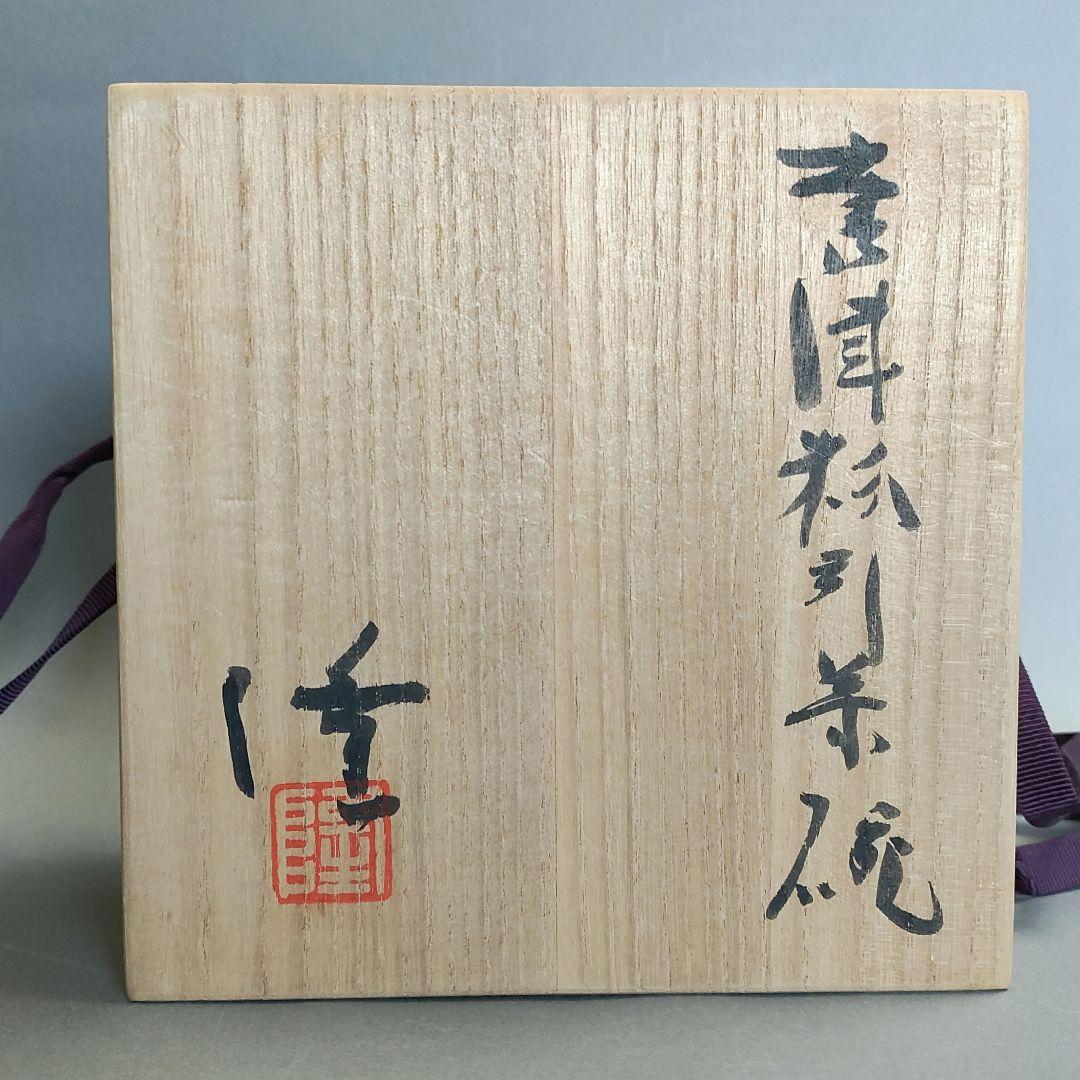 唐津粉引茶碗
隆
隆